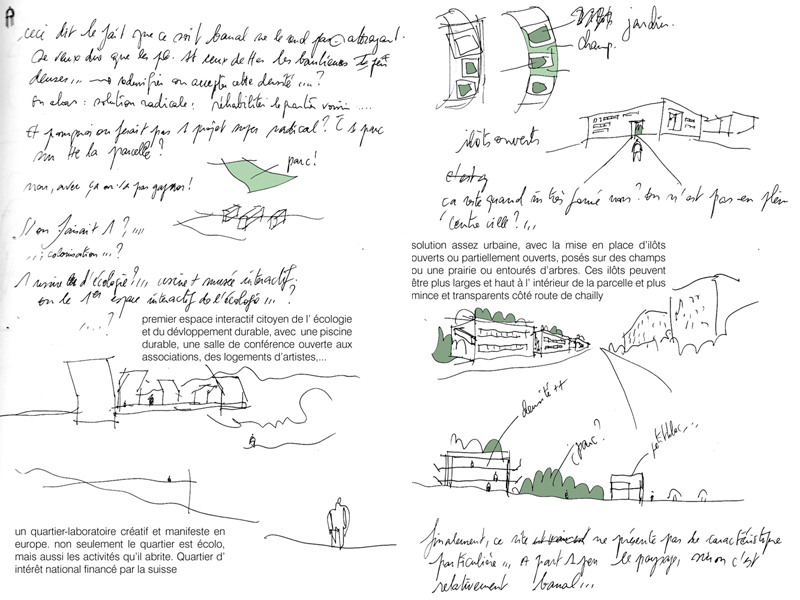 ceci dit le fait que ce soit banal ne le rend pas attrayant.
Je veux dire que les
denses... ou accepter cette densité...?
En alors : solution radicale : réhabiliter le quartier voisin ....
Et pourquoi on ferait pas 1 projet super radical? 1 parc
sur tte la parcelle?
parc!
non, avec ça on va pas gagner!
Si on faisait 1 ?....
... colonisation...?
1 usine d'écologie?... usine + musée interactif
ou le 1er espace interactif de l'écologie...?
...?
premier espace interactif citoyen de l' écologie
et du dévloppement durable, avec une piscine
durable, une salle de conférence ouverte aux
associations, des logements d'artistes,...
un quartier-laboratoire créatif et manifeste en
europe. non seulement le quartier est écolo,
mais aussi les activités qu'il abrite. Quartier d'
intérêt national financé par la suisse
jardin.
champ.
ilôts ouverts
c'est
ça reste quand m très fermé non? On n'est pas en plein
'centre ville?...
solution assez urbaine, avec la mise en place d'ilôts
ouverts ou partiellement ouverts, posés sur des champs
ou une prairie ou entourés d'arbres. Ces ilôts peuvent
être plus larges et haut à l' intérieur de la parcelle et plus
mince et transparents côté route de chailly
densité ++
parc?
finalement, ce site ne présente pas de caractéristique
particulière... A part 1 peu le paysage, sinon c'est
relativement banal...